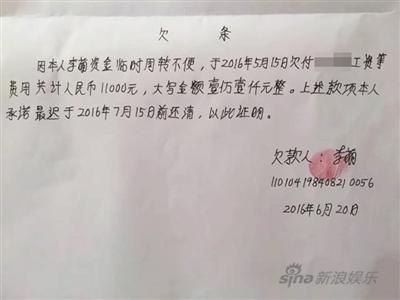 欠 条
因本人李萌资金临时周转不便，于2016年5月15日欠付 工资等
费用共计人民币11000元，大写金额壹万壹仟元整。上述款项本人
承诺最迟于2016年7月15日前还清，以此证明。
欠款人：李萌
110104198408210056
2016年6月20日
sina新浪娱乐